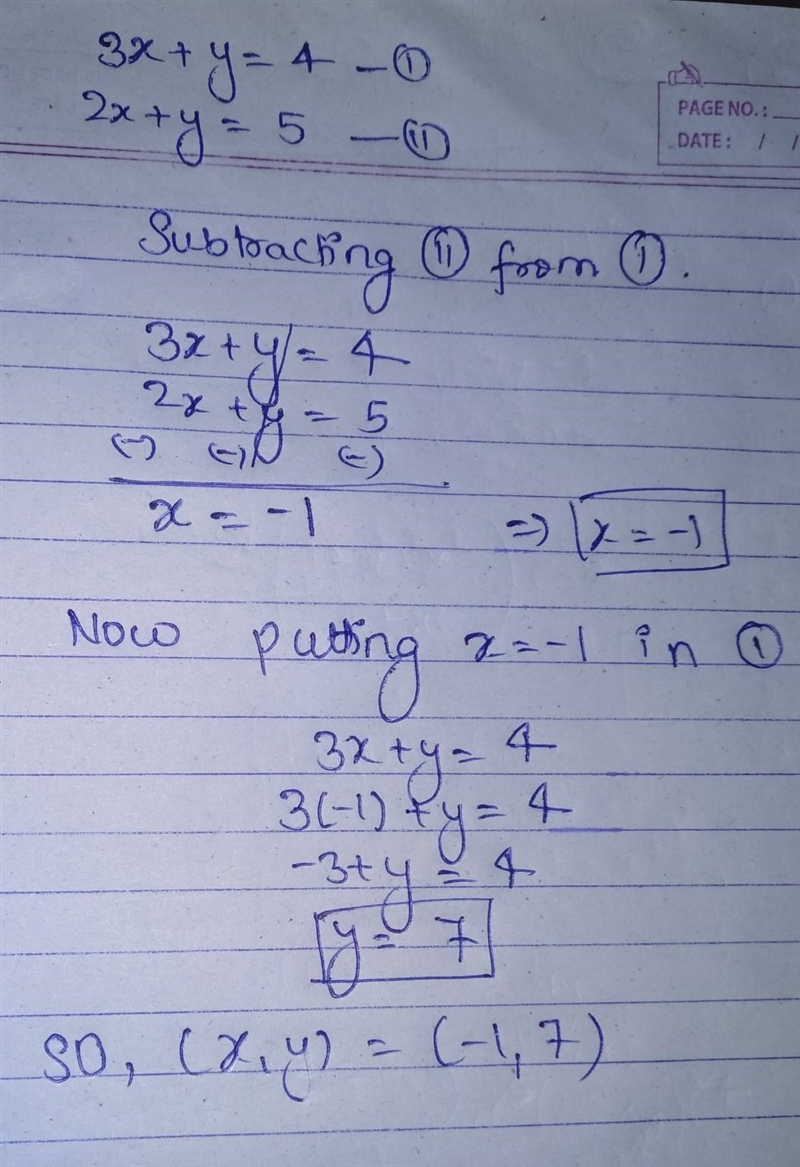 3x + y = 4 — (I)
2x + y = 5 — (II)
PAGE NO.:
DATE: / /
Subtracting (II) from (I).
3x + y = 4
2x + y = 5
(-) (-) (-)
x = -1 ⇒ x = -1
Now putting x = -1 in (I)
3x + y = 4
3(-1) + y = 4
-3 + y = 4
y = 7
SO, (x, y) = (-1, 7)